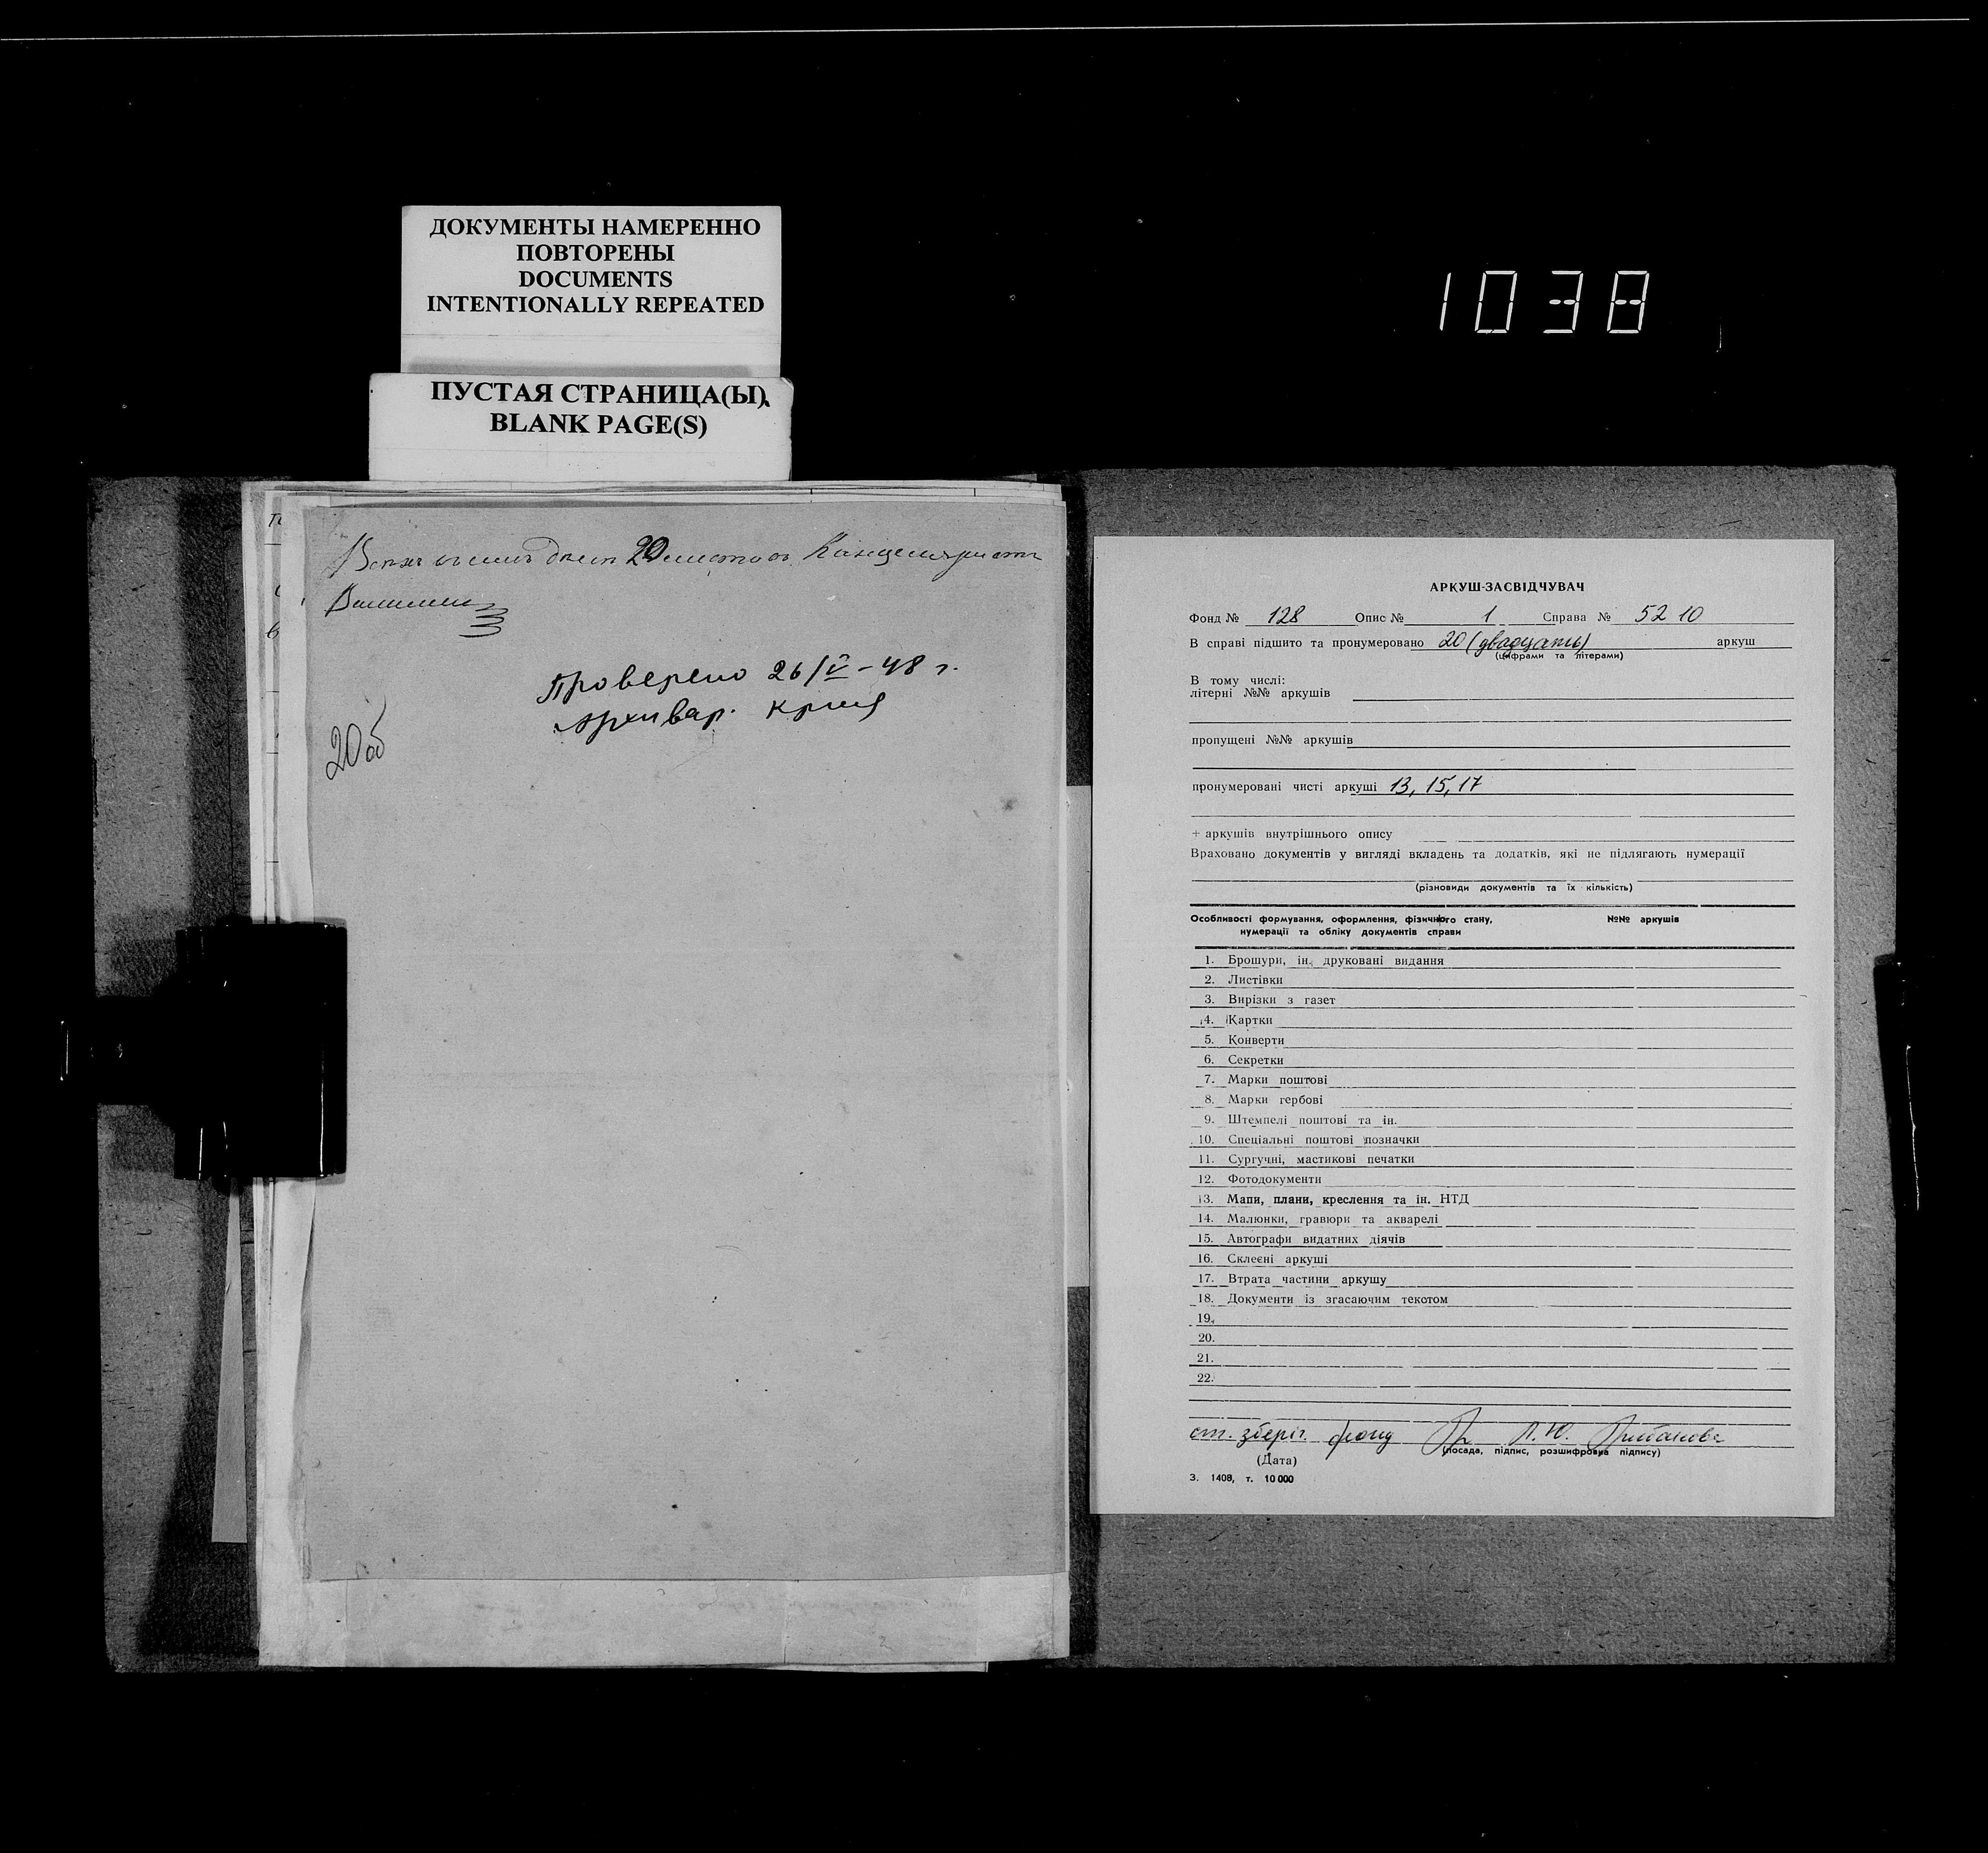 ДОКУМЕНТЫ НАМЕРЕННО
ПОВТОРЕНЫ
DOCUMENTS
INTENTIONALLY REPEATED
ПУСТАЯ СТРАНИЦА(Ы)
BLANK PAGE(S)
1038
Всѣхъ въ семъ дѣлѣ 20 листовъ. Канцеляристъ
Проверено 26/V-48 г.
Архивар.
20об
АРКУШ-ЗАСВІДЧУВАЧ
Фонд № 128 Опис № 1 Справа № 5210
В справі підшито та пронумеровано 20 (двадцать) аркуш
(цифрами та літерами)
В тому числі:
літерні №№ аркушів
пропущені №№ аркушів
пронумеровані чисті аркуші 13, 15, 17
+ аркушів внутрішнього опису
Враховано документів у вигляді вкладень та додатків, які не підлягають нумерації
(різновиди документів та їх кількість)
Особливості формування, оформлення, фізичного стану, №№ аркушів
нумерації та обліку документів справи
1. Брошури, ін. друковані видання
2. Листівки
3. Вирізки з газет
4. Картки
5. Конверти
6. Секретки
7. Марки поштові
8. Марки гербові
9. Штемпелі поштові та ін.
10. Спеціальні поштові позначки
11. Сургучні, мастикові печатки
12. Фотодокументи
13. Мапи, плани, креслення та ін. НТД
14. Малюнки, гравюри та акварелі
15. Автографи видатних діячів
16. Склеєні аркуші
17. Втрата частини аркушу
18. Документи із згасаючим текстом
19.
20.
21.
22.
ст. зберіг. фонд Л.Ю.
(посада, підпис, розшифровка підпису)
(Дата)
З. 1408, т. 10 000